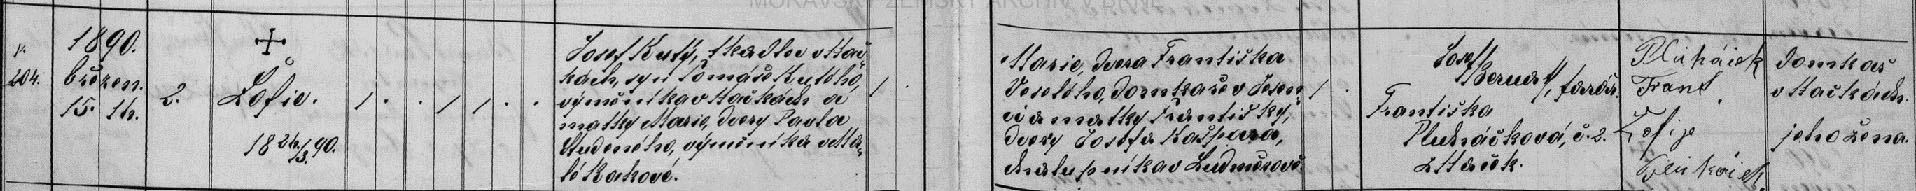 MORAVSKÝ ZEMSKÝ ARCHIV V BRNĚ
1890.
204.
březen.
15. 16.
2.
Žofie.
18 26/3 90.
Josef Kutý, tkadlec v Hač-
kách, syn Tomáše Kutého,
výměnkáře v Hačkách a
matky Marie, dcery Pavla
Studeného, výměnkáře v Ma-
lé Rakové.
Marie, dcera Františka
Veselého, domkaře v
a matky Františky,
dcery Josefa Kašpara,
chalupníka v Ludmírově.
Josef
Bernard, farář.
Františka
Pluháčková, č. 2.
z Haček.
Pluháček
Frant.
Žofije
Pluháček
domkař
v Hačkách.
jeho žena.